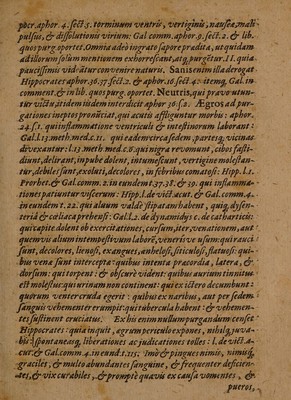 pocr. aphor. 4. sect. 3. terminum ventris, vertiginis, nauseæ, mali
pulsus, & dissolutionis virium: Gal. comm. aphor. 9. sect. 2. & lib.
quos purg. oportet. Omnia adeò ingrato sapore prædita, ut quidam
ad illorum solùm mentionem exhorrescant, atq; purgetur. 11. quia
paucissimis videātur convenire naturis. Sanis enim illa derogat
Hippocrates aphor. 36. 37. sect. 2. & aphor. 16. sect. 4. itemq; Gal. in
comment. & in lib. quos purg. oportet. Neutris, qui pravo utuntur
victu: itidem iisdem interdicit aphor. 36. s. 2. Ægros ad pur-
gationes ineptos pronūciat, qui acutis affliguntur morbis: aphor.
24. s. 1. qui inflammatione ventriculi & intestinorum laborant:
Gal. l. 13. meth. med. c. 11. qui eadem circa sedem, partesq; vicinas
divexantur: l. 13. meth. med. c. 8. qui nigra revomunt, cibos fasti-
diunt, delirant, in pube dolent, intumescunt, vertigine molestan-
tur, debiles sunt, exoluti, decolores, in febribus comatosi: Hipp. l. 1.
Prorhet. & Gal. comm. 2. in eundem t. 37. 38. & 39. qui inflamma-
tiones patiuntur viscerum: Hipp. l. de vict. acut. & Gal. comm. 4.
in eundem t. 22. qui alvum valdè stipatam habent, quiq; dysen-
teriâ & cœliaca prehensi: Gal. l. 2. de dynamidys c. de catharticis:
qui capite dolent ob exercitationes, cursum, iter, venationem, aut
quemvis alium intempestivum laborē, venerisve usum: qui rauci
sunt, decolores, lienosi, exangues, anhelosi, siticulosi, flatuosi: qui-
bus venæ sunt interceptæ: quibus intenta præcordia, latera, &
dorsum: qui torpent: & obscurè vident: quibus aurium tinnitus
est molestus: qui urinam non continent: qui ex ictero decumbunt:
quorum venter cruda egerit: quibus ex naribus, aut per sedem
sanguis vehementer erumpit: qui tubercula habent & vehemen-
tes sustinent cruciatus. Ex his enim nullum purgandum censet
Hippocrates: quia inquit, agrum periculo expones, nihilq; juva-
bis: spontaneasq; liberationes ac judicationes tolles: l. de vict. a-
cut. & Gal. comm. 4. in eund. t. 115. Imò & pingues nimis, nimiùq;
graciles, & multo abundantes sanguine, & frequenter deficien-
tes, & vix curabiles, & promptè quavis ex causa vomentes, &
pueros,